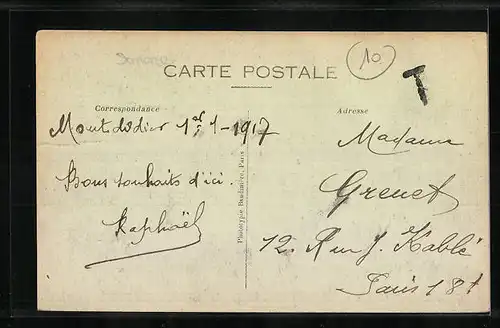 Somme
10
CARTE POSTALE
T
Correspondance
Adresse
Montdidier 1er-1-1917
Bons souhaits d'ici.
Raphaël
Phototypie Baudinière, Paris
Madame
Grenet
12. Rue J. Kablé
Paris 18e